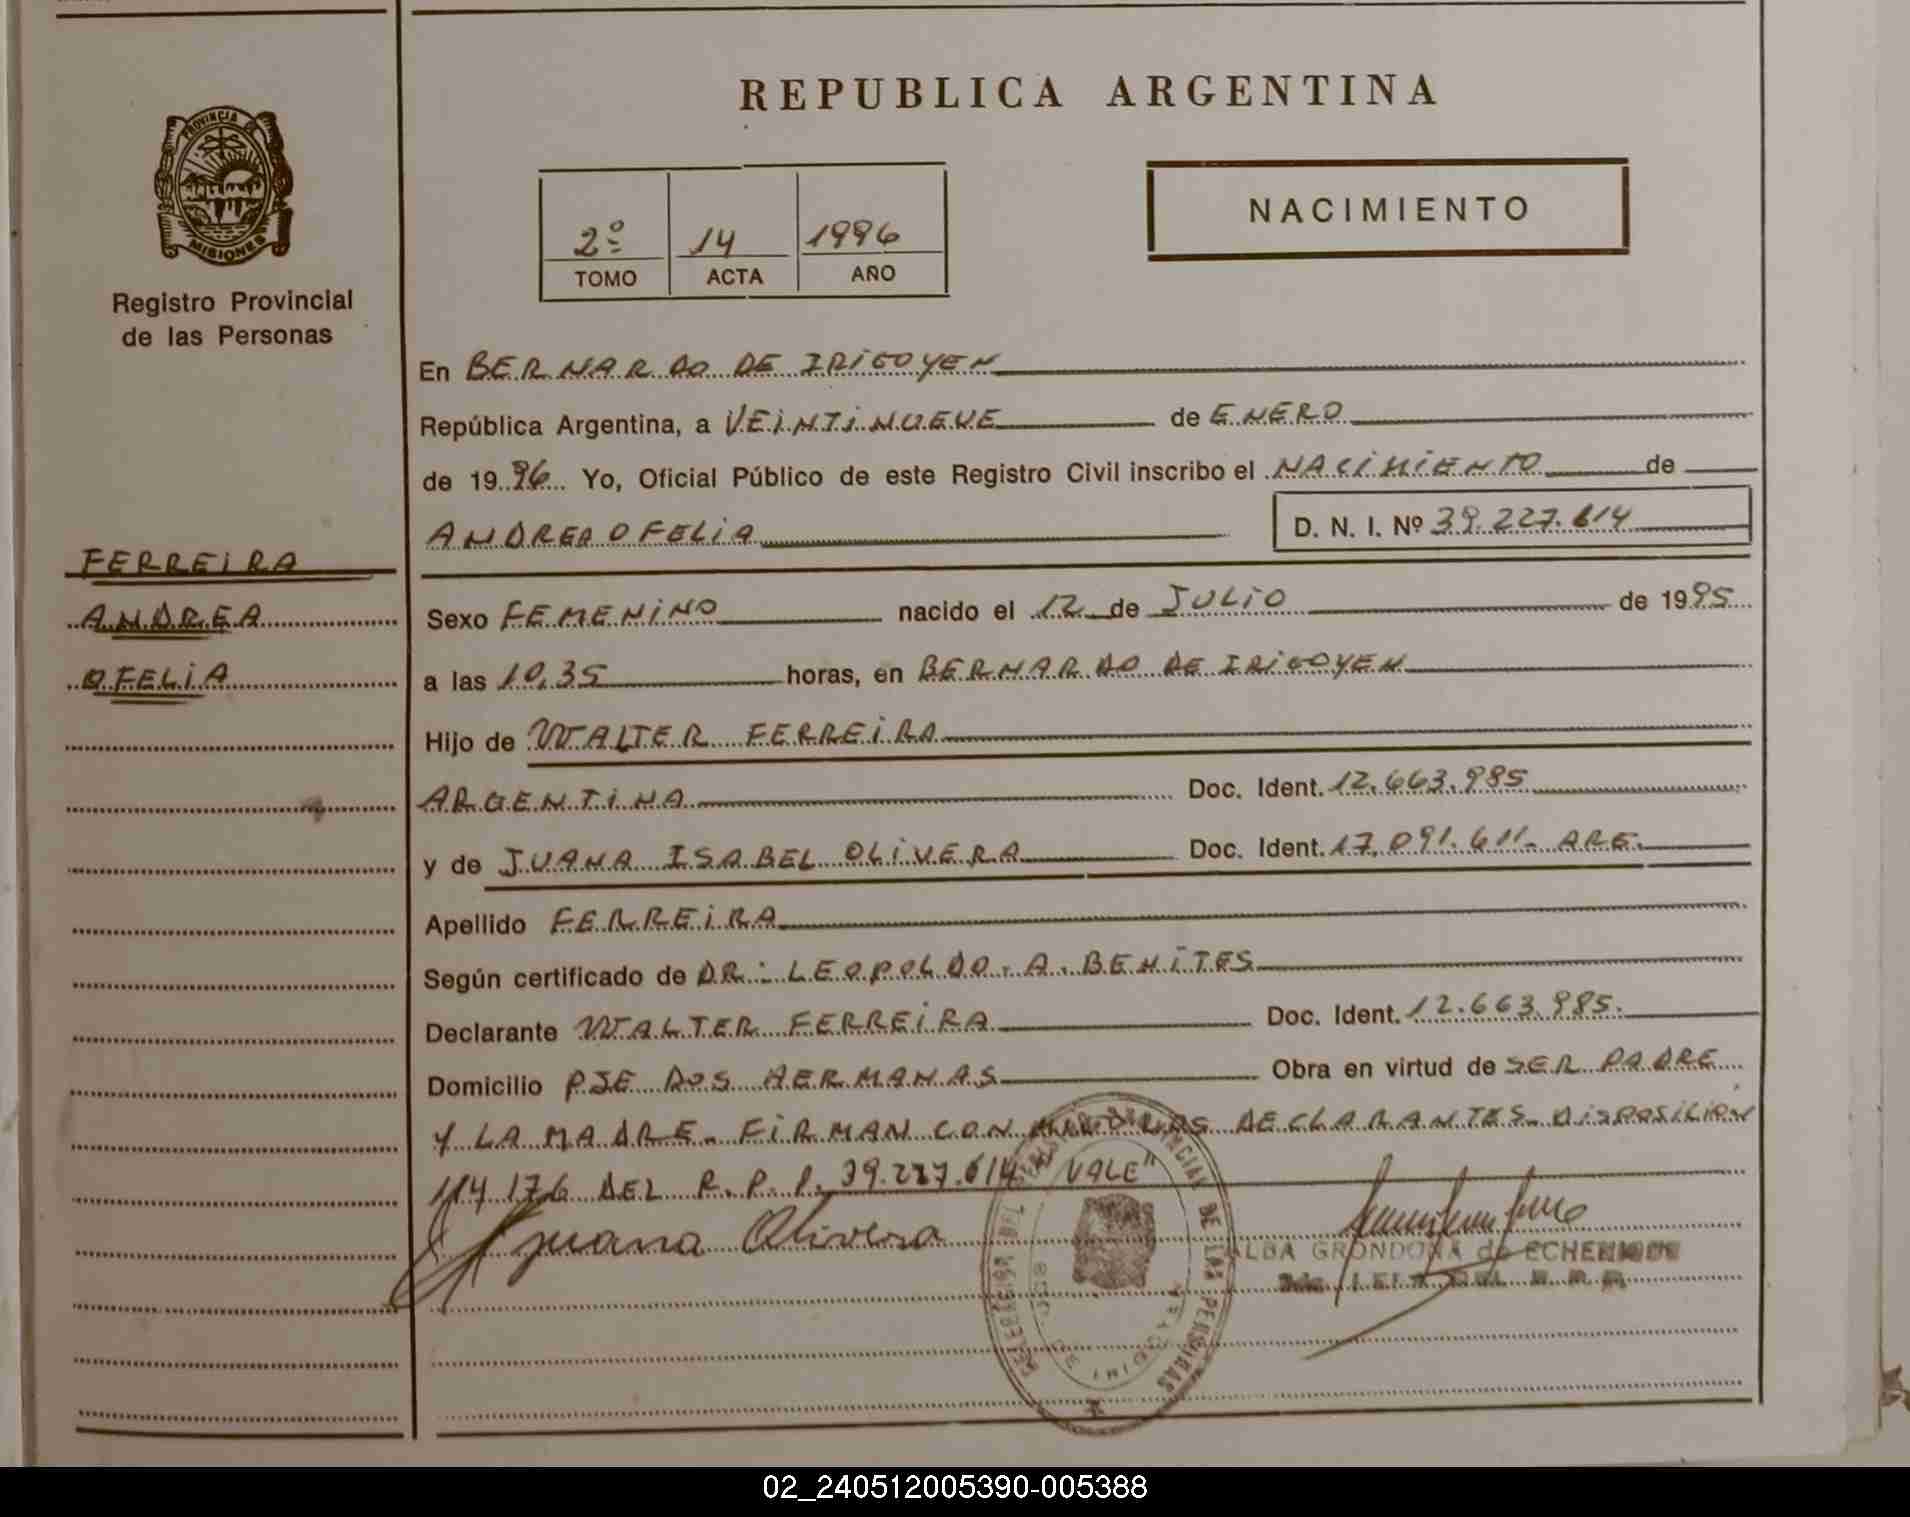 REPUBLICA ARGENTINA
PROVINCIA DE
MISIONES
Registro Provincial
de las Personas
2º 14 1996
TOMO ACTA AÑO
NACIMIENTO
En BERNARDO DE IRIGOYEN
República Argentina, a VEINTINUEVE de ENERO
de 19 96 Yo, Oficial Público de este Registro Civil inscribo el NACIMIENTO de
ANDREA OFELIA D. N. I. Nº 39.227.614
FERREIRA
ANDREA
OFELIA
Sexo FEMENINO nacido el 12 de JULIO de 1995
a las 10,35 horas, en BERNARDO DE IRIGOYEN
Hijo de WALTER FERREIRA
ARGENTINA Doc. Ident. 12.663.985
y de JUANA ISABEL OLIVERA Doc. Ident. 17.091.611- ARG.
Apellido FERREIRA
Según certificado de DR: LEOPOLDO. A. BENITES
Declarante WALTER FERREIRA Doc. Ident. 12.663.985.
Domicilio PJE DOS HERMANAS Obra en virtud de SER PADRE
Y LA MADRE. FIRMAN CON LOS DECLARANTES. DISPOSICION
114 176 DEL R. P. P. 39.227.614 VALE"
Juana Olivera
ALBA GRONDONA de ECHENIQUE
DE LAS PERSONAS
02_240512005390-005388